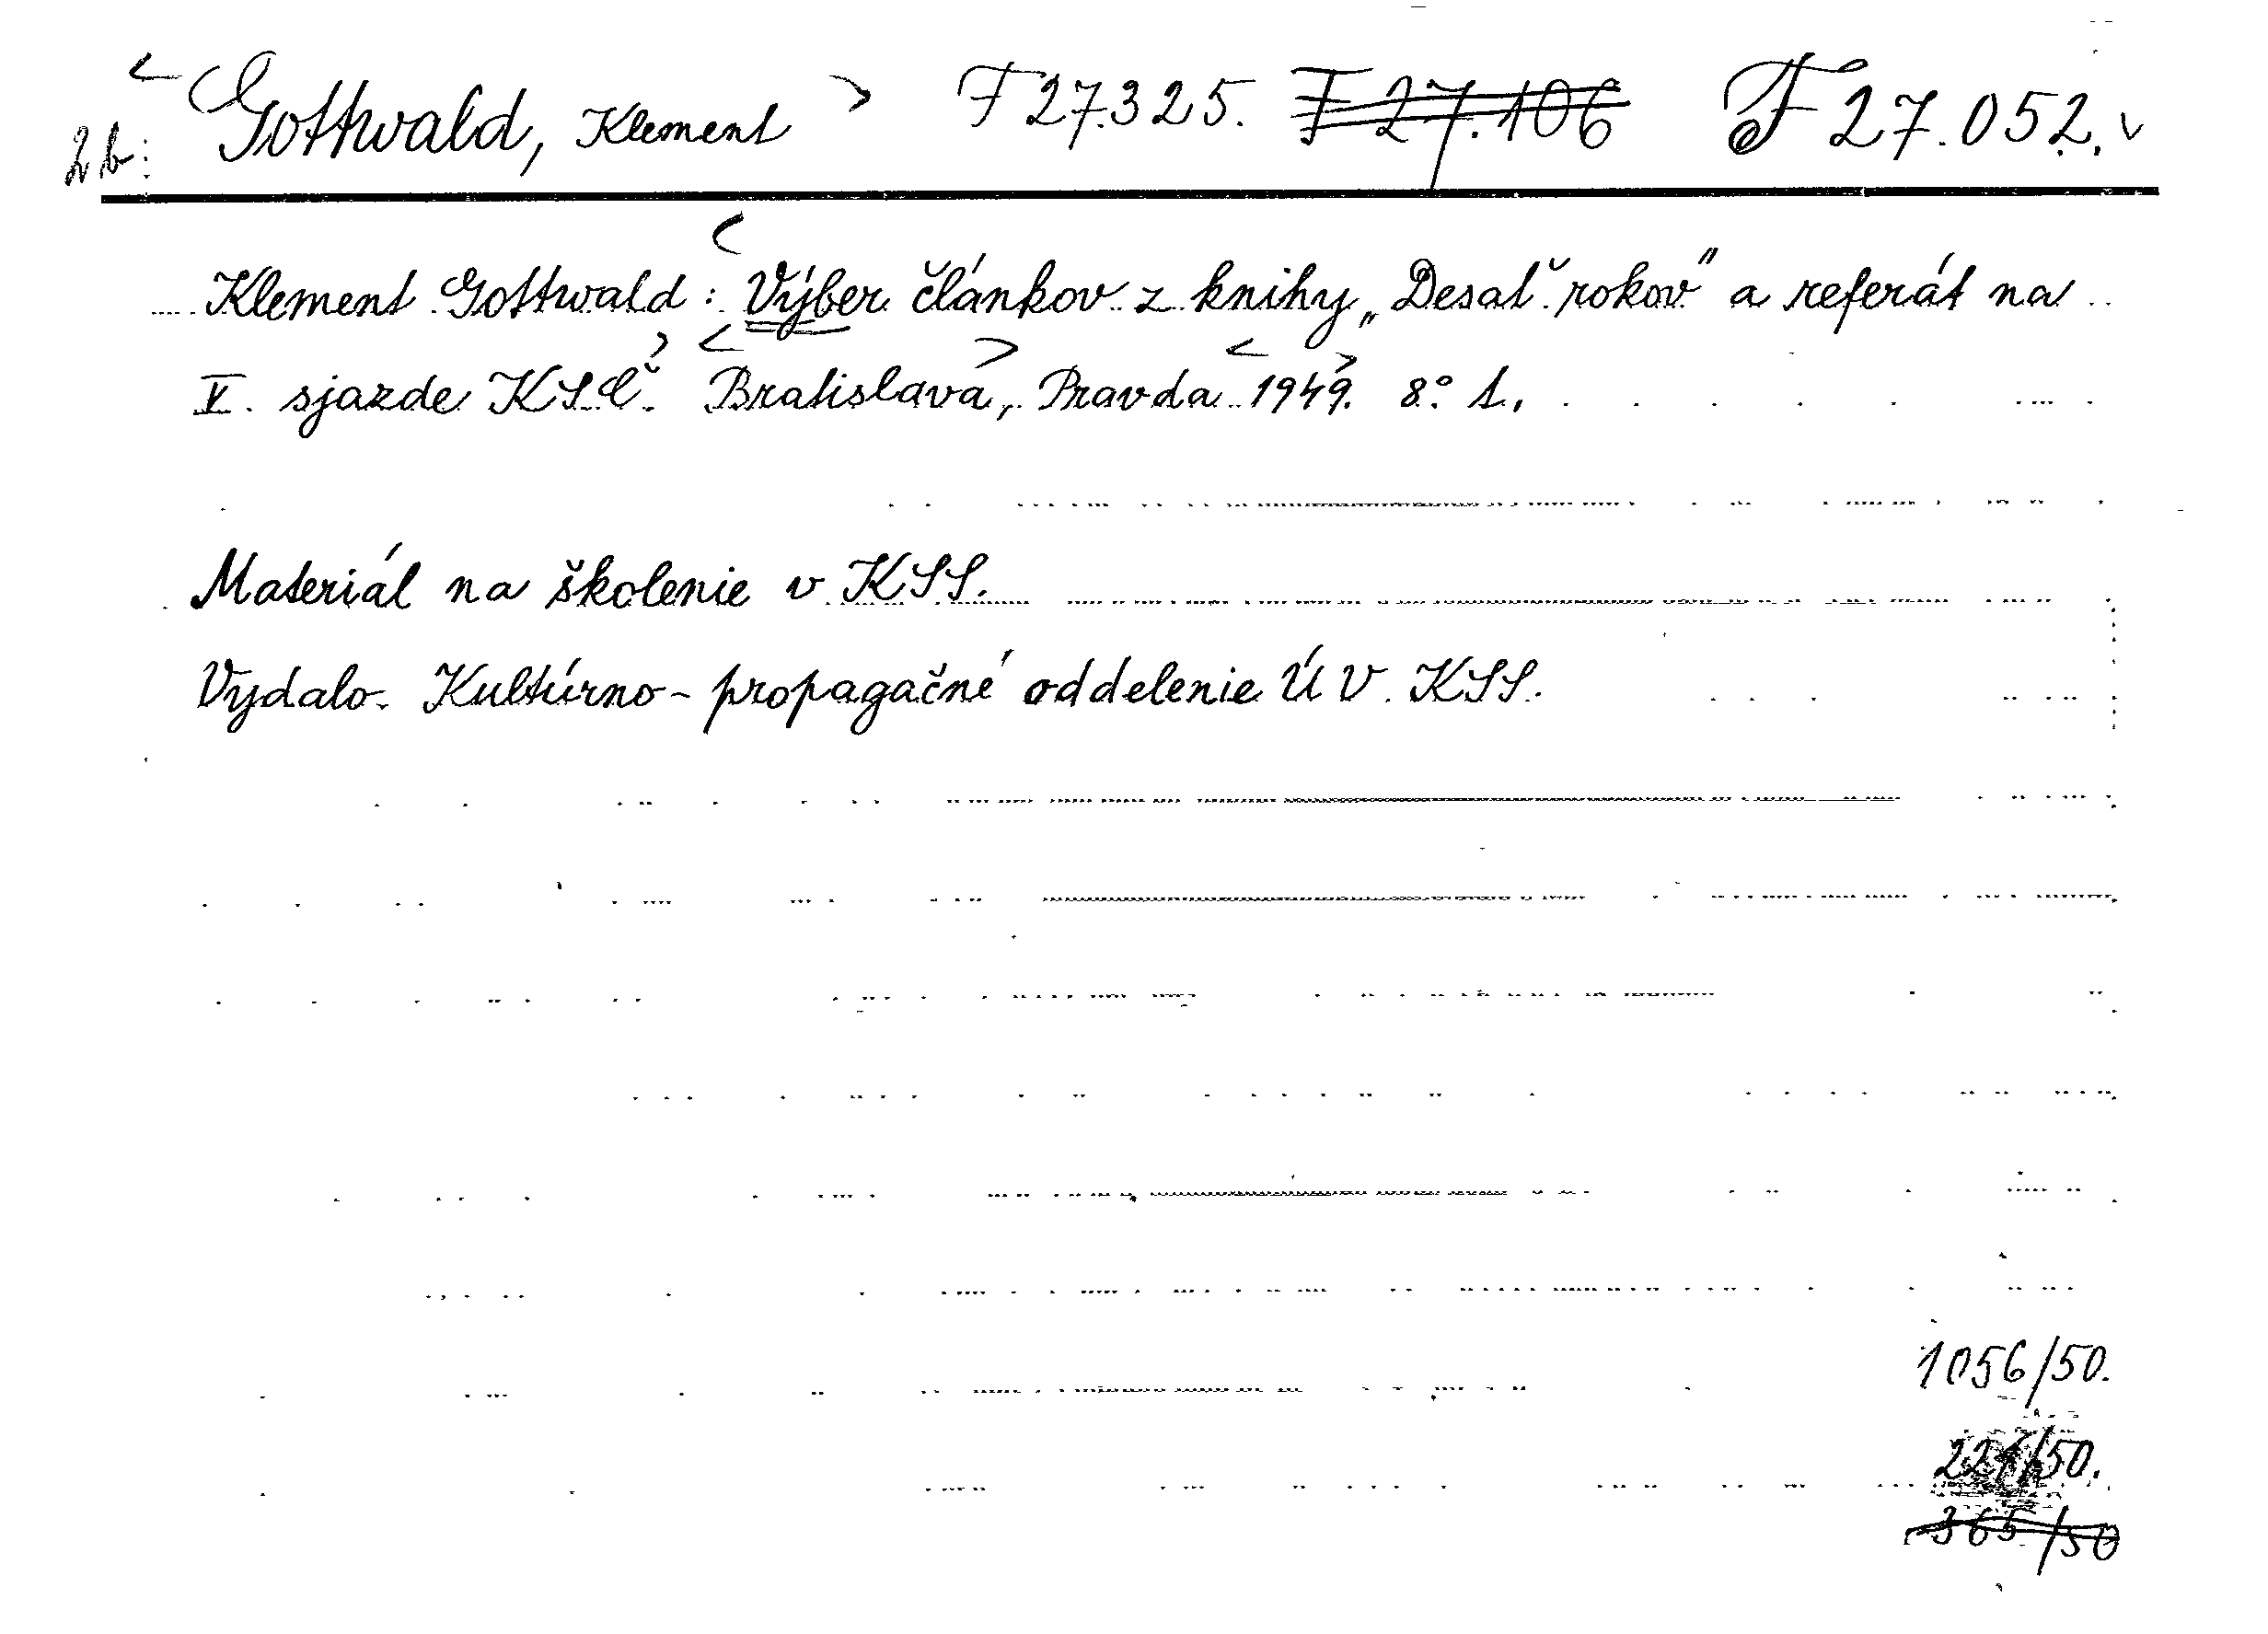 < Gottwald, Klement > F 27.325. F 27.106 F 27.052. v
2b:
Klement Gottwald: <Výber článkov z knihy „Desať rokov" a referát na
V. sjazde KSČ.> <Bratislava>, Pravda <1949>. 8° 1.
Materiál na školenie v KSS.
Vydalo Kultúrno-propagačné oddelenie ÚV KSS.
1056/50.
365/50